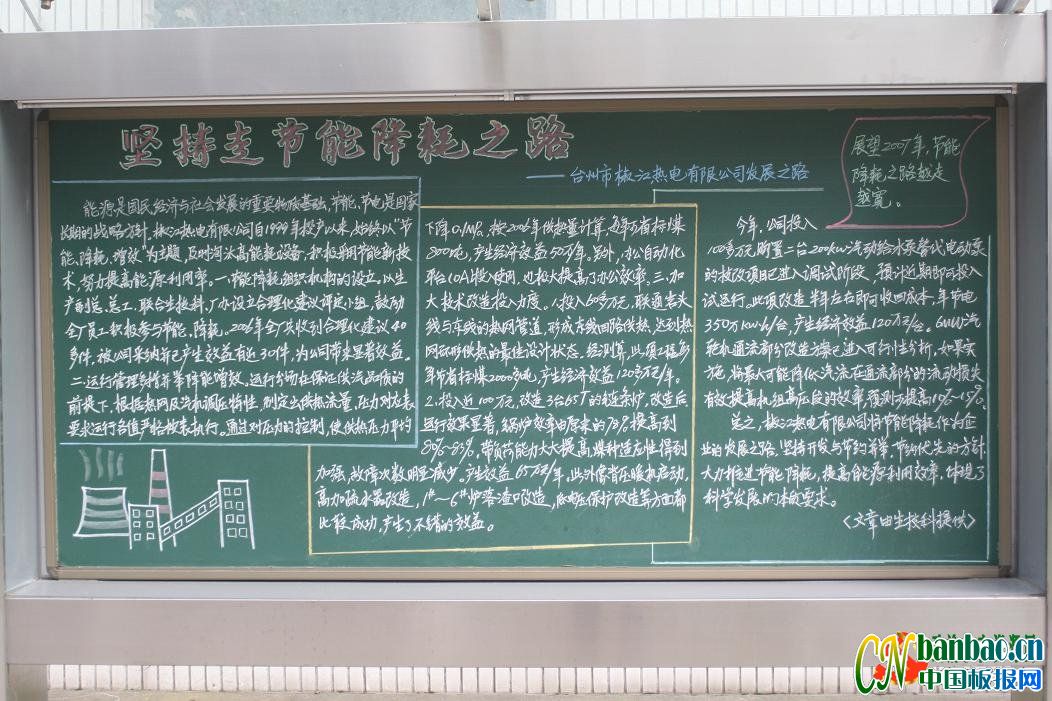 坚持走节能降耗之路
——台州市椒江热电有限公司发展之路
展望2007年,节能
降耗之路越走
越宽。
能源是国民经济与社会发展的重要物质基础,节能、节电是国家
长期的战略方针。椒江热电有限公司自1999年投产以来,始终以“节
能、降耗、增效”为主题,及时淘汰高能耗设备,积极采用节能新技
术,努力提高能源利用率。一、节能降耗组织机构的设立,以生
产副总、总工,联合生技科、厂办设立合理化建议评定小组,鼓励
全厂员工积极参与节能、降耗。2006年全厂共收到合理化建议40
多件,被公司采纳并已产生效益有近30件,为公司带来显著效益。
二、运行管理多措并举降能增效。运行分场在保证供汽品质的
前提下,根据热网及汽机调压特性,制定出供热流量、压力对应表
要求运行各值严格按表执行。通过对压力的控制,使供热压力平均
下降0.1MPa,按2006年供热量计算,每年可省标煤
800吨,产生经济效益50万/年。另外,办公自动化
平台(OA)投入使用,也极大提高了办公效率。三、加
大技术改造投入力度。1、投入60多万元,联通老头
线与东线的热网管道,形成东线回路供热,达到热
网环形供热的最佳设计状态。经测算,此项工程每
年节省标煤2000多吨,产生经济效益120多万元/年。
2、投入近100万元,改造3台65T的链条炉,改造后
运行效果显著,锅炉效率由原来的73%提高到
80%-83%,带负荷能力大大提高,煤种适应性得到
加强,故障次数明显减少。产生效益65万元/年。此外像背压暖机启动,
高加疏水器改造,1#~6#炉落渣口改造,低电压保护改造等方面都
比较成功,产生了不错的效益。
今年,公司投入
100多万元购置二台200kw汽动给水泵替代电动泵
的技改项目已进入调试阶段,预计近期即可投入
试运行。此项改造半年左右即可收回成本,年节电
350万kw·h/台,产生经济效益120万元/台。6MW汽
轮机通流部分改造方案已进入可行性分析,如果实
施,将最大可能降低汽流在通流部分的流动损失
有效提高机组高压段的效率,预测可提高10%~15%。
总之,椒江热电有限公司将节能降耗作为企
业的发展之路,坚持开发与节约并举,节约优先的方针,
大力推进节能降耗,提高能源利用效率,体现了
科学发展的本质要求。
〈文章由生技科提供〉
CN banbao.cn
中国板报网